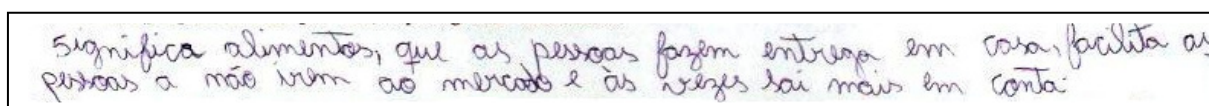 significa alimentos, que as pessoas fazem entrega em casa, facilita as
pessoas a não irem ao mercado e às vezes sai mais em conta.